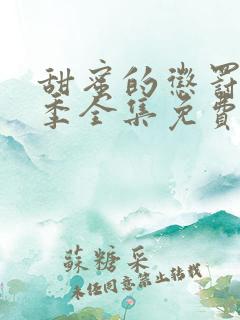 甜蜜的懲罰
季全集免費
蘇糖采
未经同意禁止转载